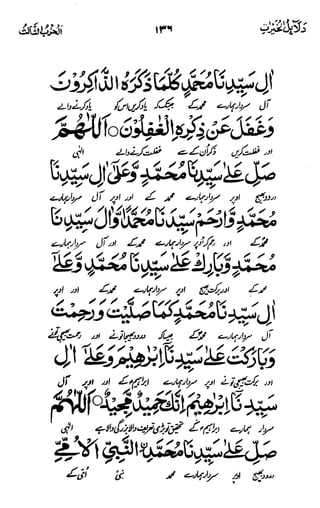 دلائل الخیرات ۱۳۶ الحزب الثالث
اٰلِ سَیِّدِنَا مُحَمَّدٍ کُلَّمَا ذَکَرَهُ الذَّاکِرُوْنَ
آل سردار ہمارے محمد کے جبکہ یاد کریں اس کو یاد کرنے والے
وَغَفَلَ عَنْ ذِکْرِهِ الْغٰفِلُوْنَ ○ اَللّٰهُمَّ
اور غفلت کریں ذکر ان کے سے غفلت کرنے والے الٰہی
صَلِّ عَلٰی سَیِّدِنَا مُحَمَّدٍ وَّعَلٰۤی اٰلِ سَیِّدِنَا
درود بھیج اوپر سردار ہمارے محمد کے اور اوپر آل سردار ہمارے
مُحَمَّدٍ وَّارْحَمْ سَیِّدَنَا مُحَمَّدًا وَّاٰلَ سَیِّدِنَا
محمد کے اور رحم کر اوپر سردار ہمارے محمد کے اور آل سردار ہمارے
مُحَمَّدٍ وَّبَارِكْ عَلٰی سَیِّدِنَا مُحَمَّدٍ وَّعَلٰۤی
محمد کے اور برکت بھیج اوپر سردار ہمارے محمد کے اور اوپر
اٰلِ سَیِّدِنَا مُحَمَّدٍ کَمَا صَلَّیْتَ وَرَحِمْتَ
آل سردار ہمارے محمد کے جیساکہ درود بھیجا تونے اور رحمت بھیجی تونے
وَبَارَکْتَ عَلٰی سَیِّدِنَاۤ اِبْرٰهِیْمَ وَعَلٰۤی اٰلِ
اور برکت بھیجی تونے اوپر سردار ہمارے ابراہیم کے اور اوپر آل
سَیِّدِنَاۤ اِبْرٰهِیْمَ اِنَّكَ حَمِیْدٌ مَّجِیْدٌ ○ اَللّٰهُمَّ
سردار ہمارے ابراہیم کے تحقیق تو بڑی تعریف والا بزرگی والا ہے الٰہی
صَلِّ عَلٰی سَیِّدِنَا مُحَمَّدِ نِ النَّبِیِّ الْاُمِّیِّ
درود بھیج اوپر سردار ہمارے محمد نبی اُمّی کے